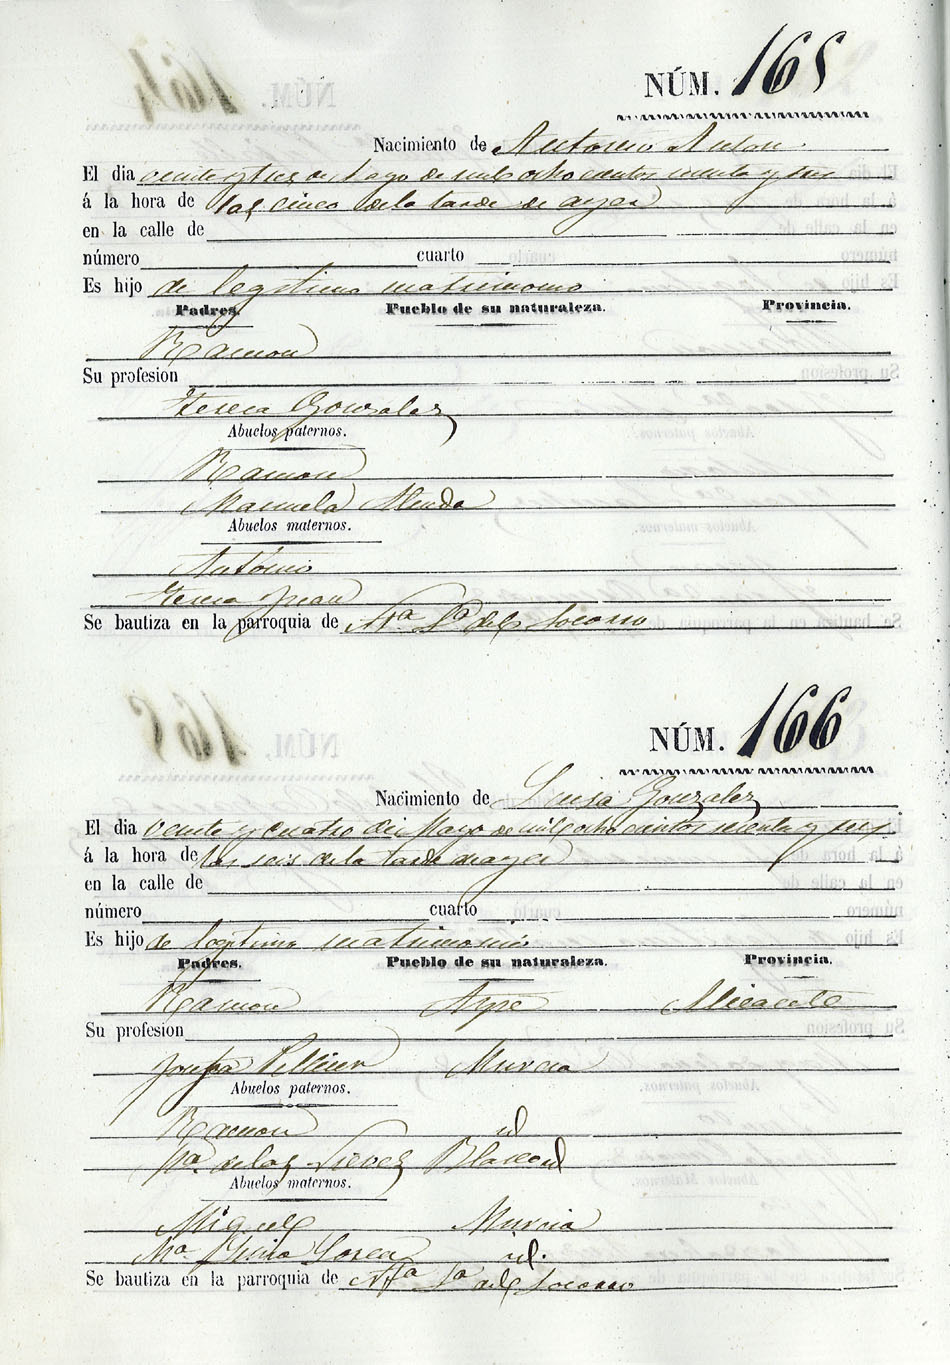 NÚM. 165
Nacimiento de Antonio Anton
El dia veinte y tres de Mayo de mil ocho cientos setenta y tres
á la hora de las cinco de la tarde de ayer
en la calle de
número cuarto
Es hijo de legitimo matrimonio
Padres. Pueblo de su naturaleza. Provincia.
Ramon
Su profesion
Teresa Gonzalez
Abuelos paternos.
Ramon
Manuela
Abuelos maternos.
Antonio
Teresa Juan
Se bautiza en la parroquia de Ntra Sra del Socorro
NÚM. 166
Nacimiento de Luisa Gonzalez
El dia veinte y cuatro de Mayo de mil ocho cientos setenta y tres
á la hora de las seis de la tarde de ayer
en la calle de
número cuarto
Es hijo de legitimo matrimonio
Padres. Pueblo de su naturaleza. Provincia.
Ramon Aspe Alicante
Su profesion
Josefa Murcia
Abuelos paternos.
Ramon id
Ma. de las Nieves
Abuelos maternos.
Miguel Murcia
Ma. id.
Se bautiza en la parroquia de Ntra Sra del Socorro